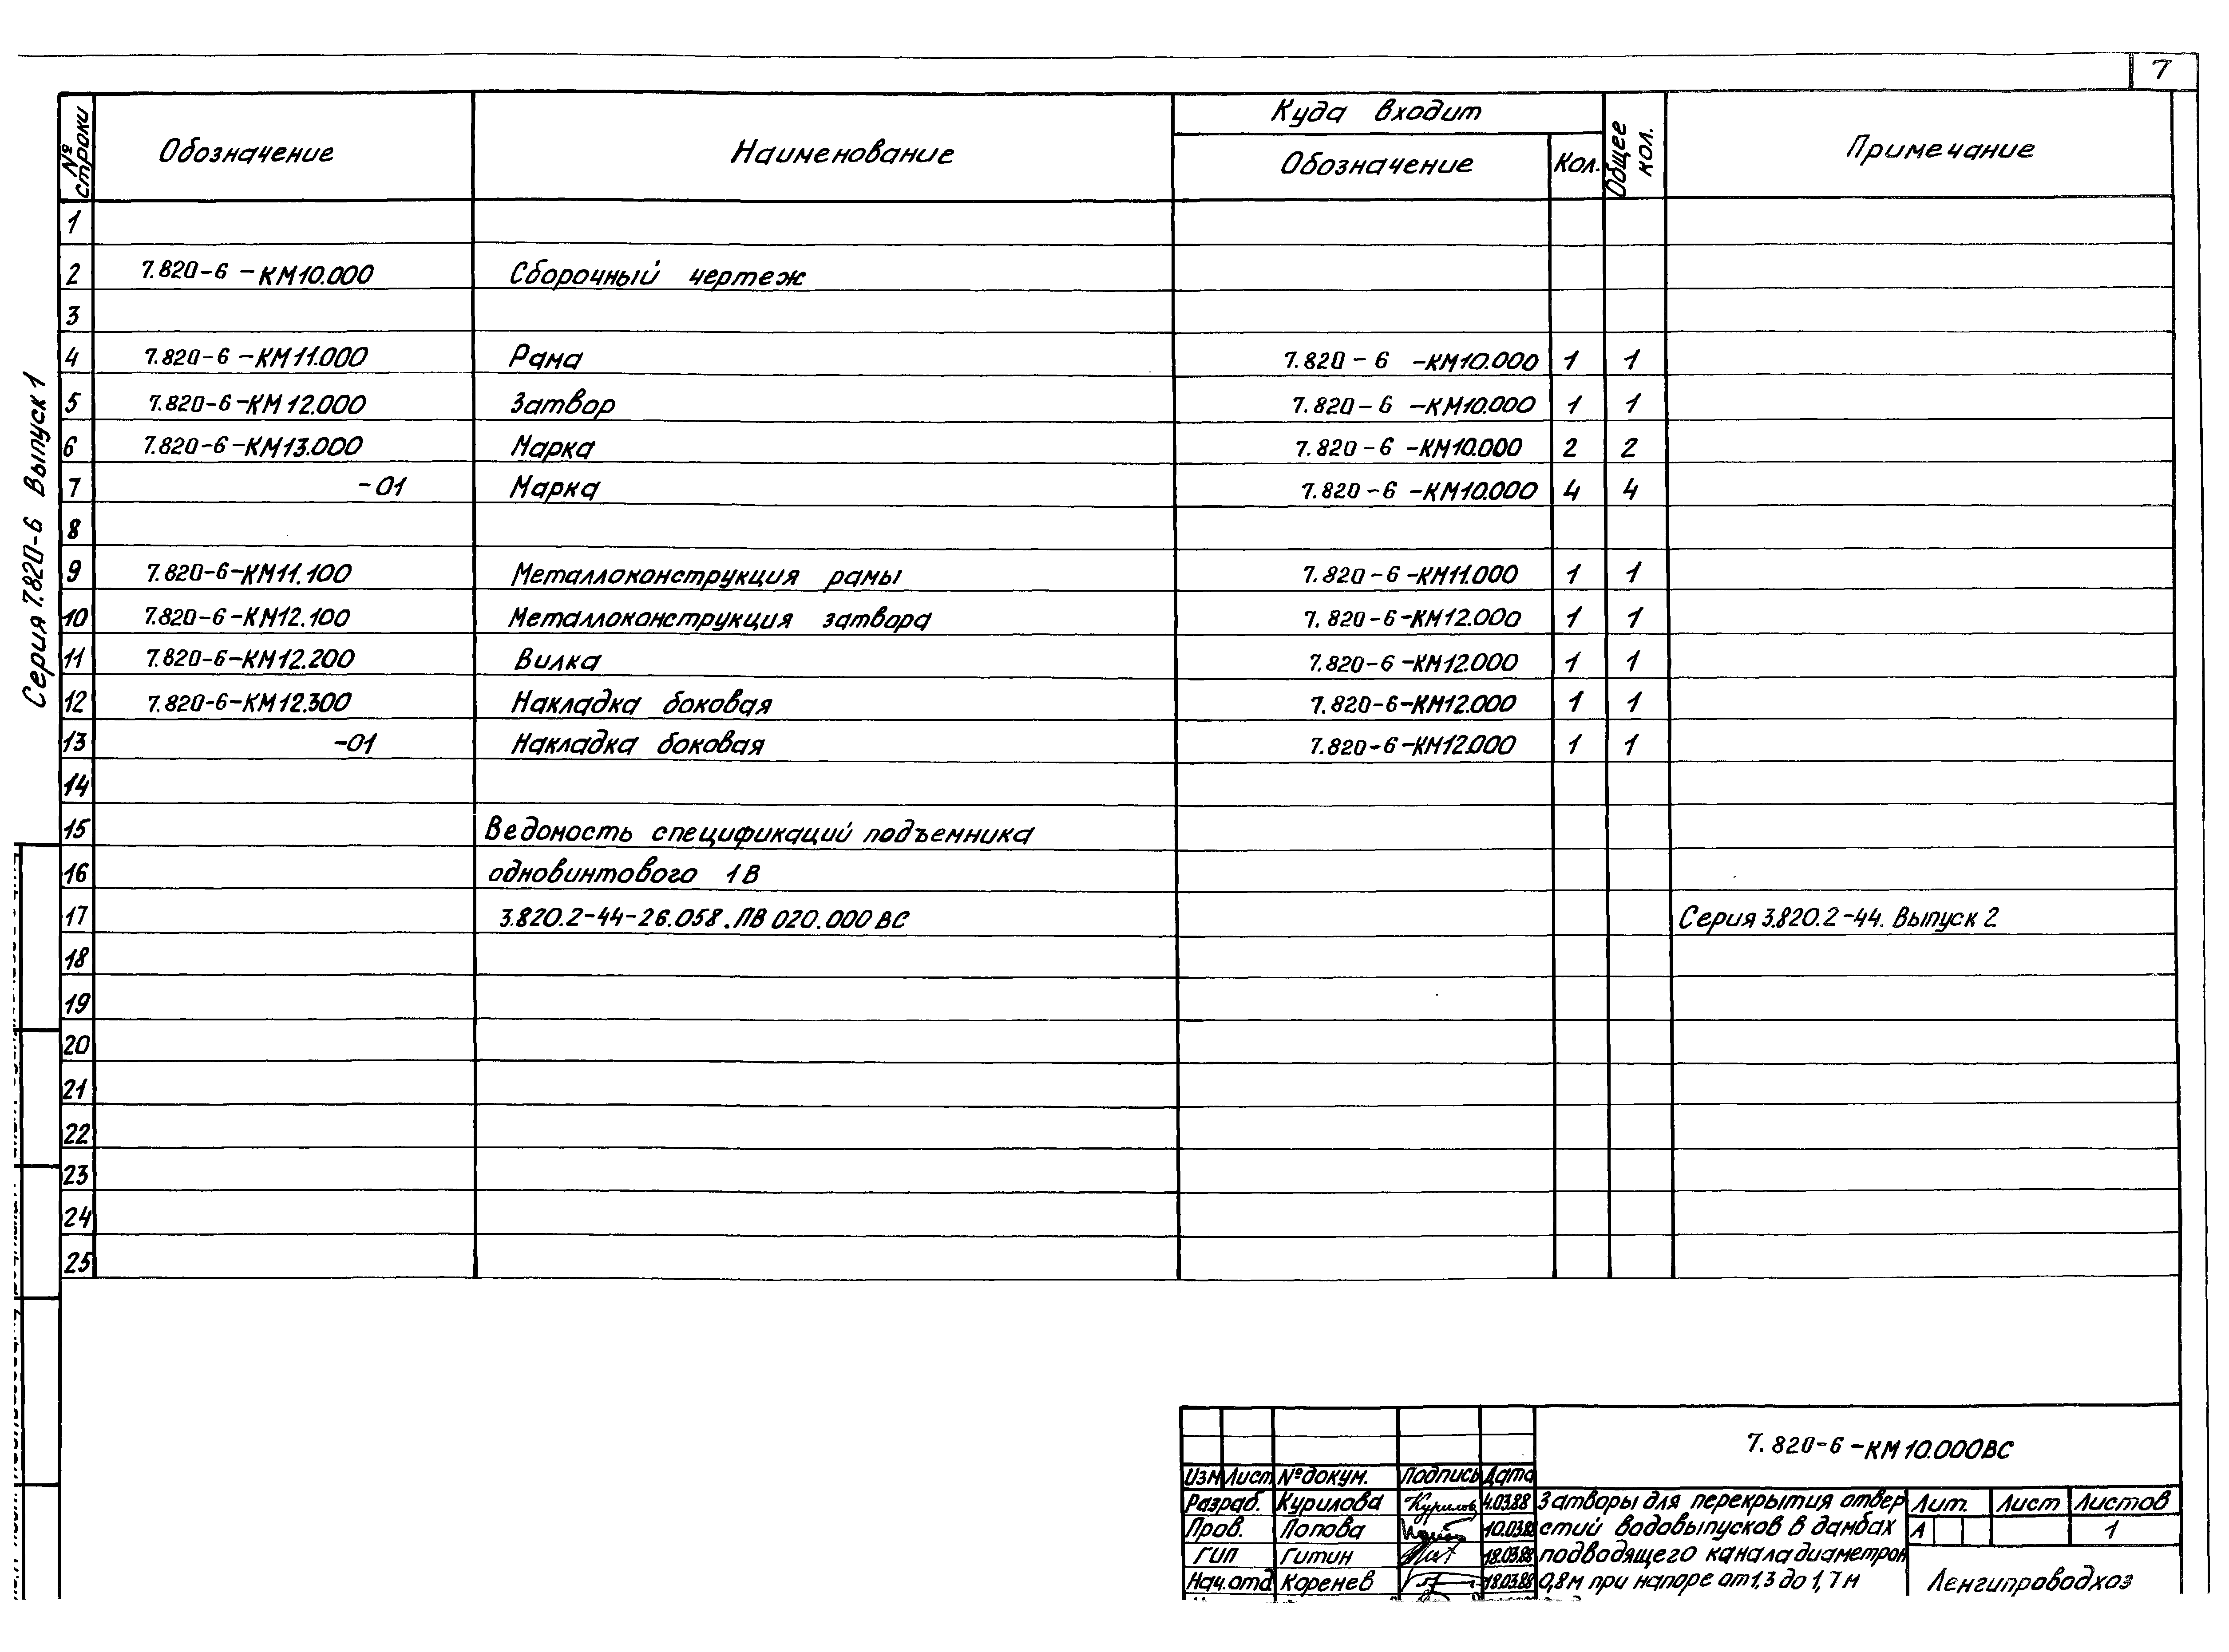 7
№ строки
Обозначение
Наименование
Куда входит
Обозначение
Кол.
Общее кол.
Примечание
1
2 7.820-6-КМ10.000 Сборочный чертеж
3
4 7.820-6-КМ11.000 Рама 7.820-6-КМ10.000 1 1
5 7.820-6-КМ12.000 Затвор 7.820-6-КМ10.000 1 1
6 7.820-6-КМ13.000 Марка 7.820-6-КМ10.000 2 2
7 -01 Марка 7.820-6-КМ10.000 4 4
8
9 7.820-6-КМ11.100 Металлоконструкция рамы 7.820-6-КМ11.000 1 1
10 7.820-6-КМ12.100 Металлоконструкция затвора 7.820-6-КМ12.000 1 1
11 7.820-6-КМ12.200 Вилка 7.820-6-КМ12.000 1 1
12 7.820-6-КМ12.300 Накладка боковая 7.820-6-КМ12.000 1 1
13 -01 Накладка боковая 7.820-6-КМ12.000 1 1
14
15 Ведомость спецификаций подъемника
16 одновинтового 1В
17 3.820.2-44-26.058.ПВ 020.000 ВС Серия 3.820.2-44. Выпуск 2
18
19
20
21
22
23
24
25
Серия 7.820-6 Выпуск 1
7.820-6-КМ10.000ВС
Изм Лист № докум. Подпись Дата
Разраб. Курилова Курилов 4.03.88
Пров. Попова 10.03.88
ГИП Гитин 18.03.88
Нач.отд Коренев 18.03.88
Затворы для перекрытия отвер
стий водовыпусков в дамбах
подводящего канала диаметром
0,8м при напоре от 1,3 до 1,7м
Лит. Лист Листов
А 1
Ленгипроводхоз